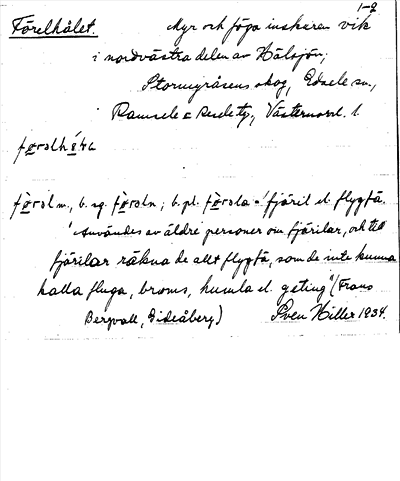 1-2
Förelhålet. Myr och föga inskuren vik
i nordvästra delen av Hälsjön;
Stormyråsens skog, Edsele sn.,
Ramsele o Resele tg., Västernorrl. l.
förel m., b. sg. föreln; b. pl. förela = 'fjäril el. flygfä.
'Användes av äldre personer om fjärilar, och till
fjärilar räkna de allt flygfä, som de inte kunna
kalla fluga, broms, humla el. geting" (Frans
Bergvall, Gideåberg) Sven Hiller 1934.